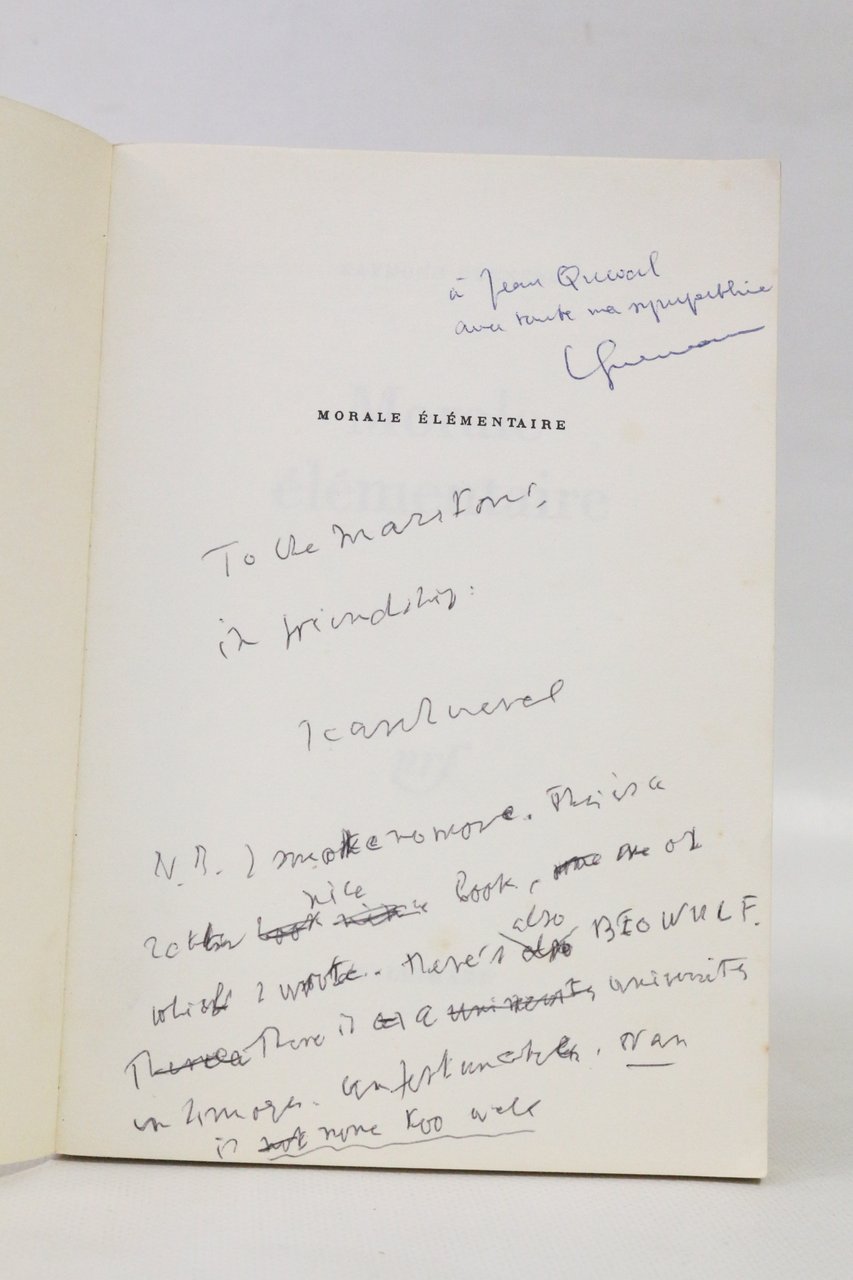 à Jean Queval
avec toute ma sympathie
Queneau
MORALE ÉLÉMENTAIRE
To the Marstons,
in friendship:
Jean Queval
N.B. I smoke no more. This is a
nice
rather book book, one of
which I wrote. There's also
also BEOWULF.
There is a university university
in Limoges. Unfortunately. Nan
is not none too well